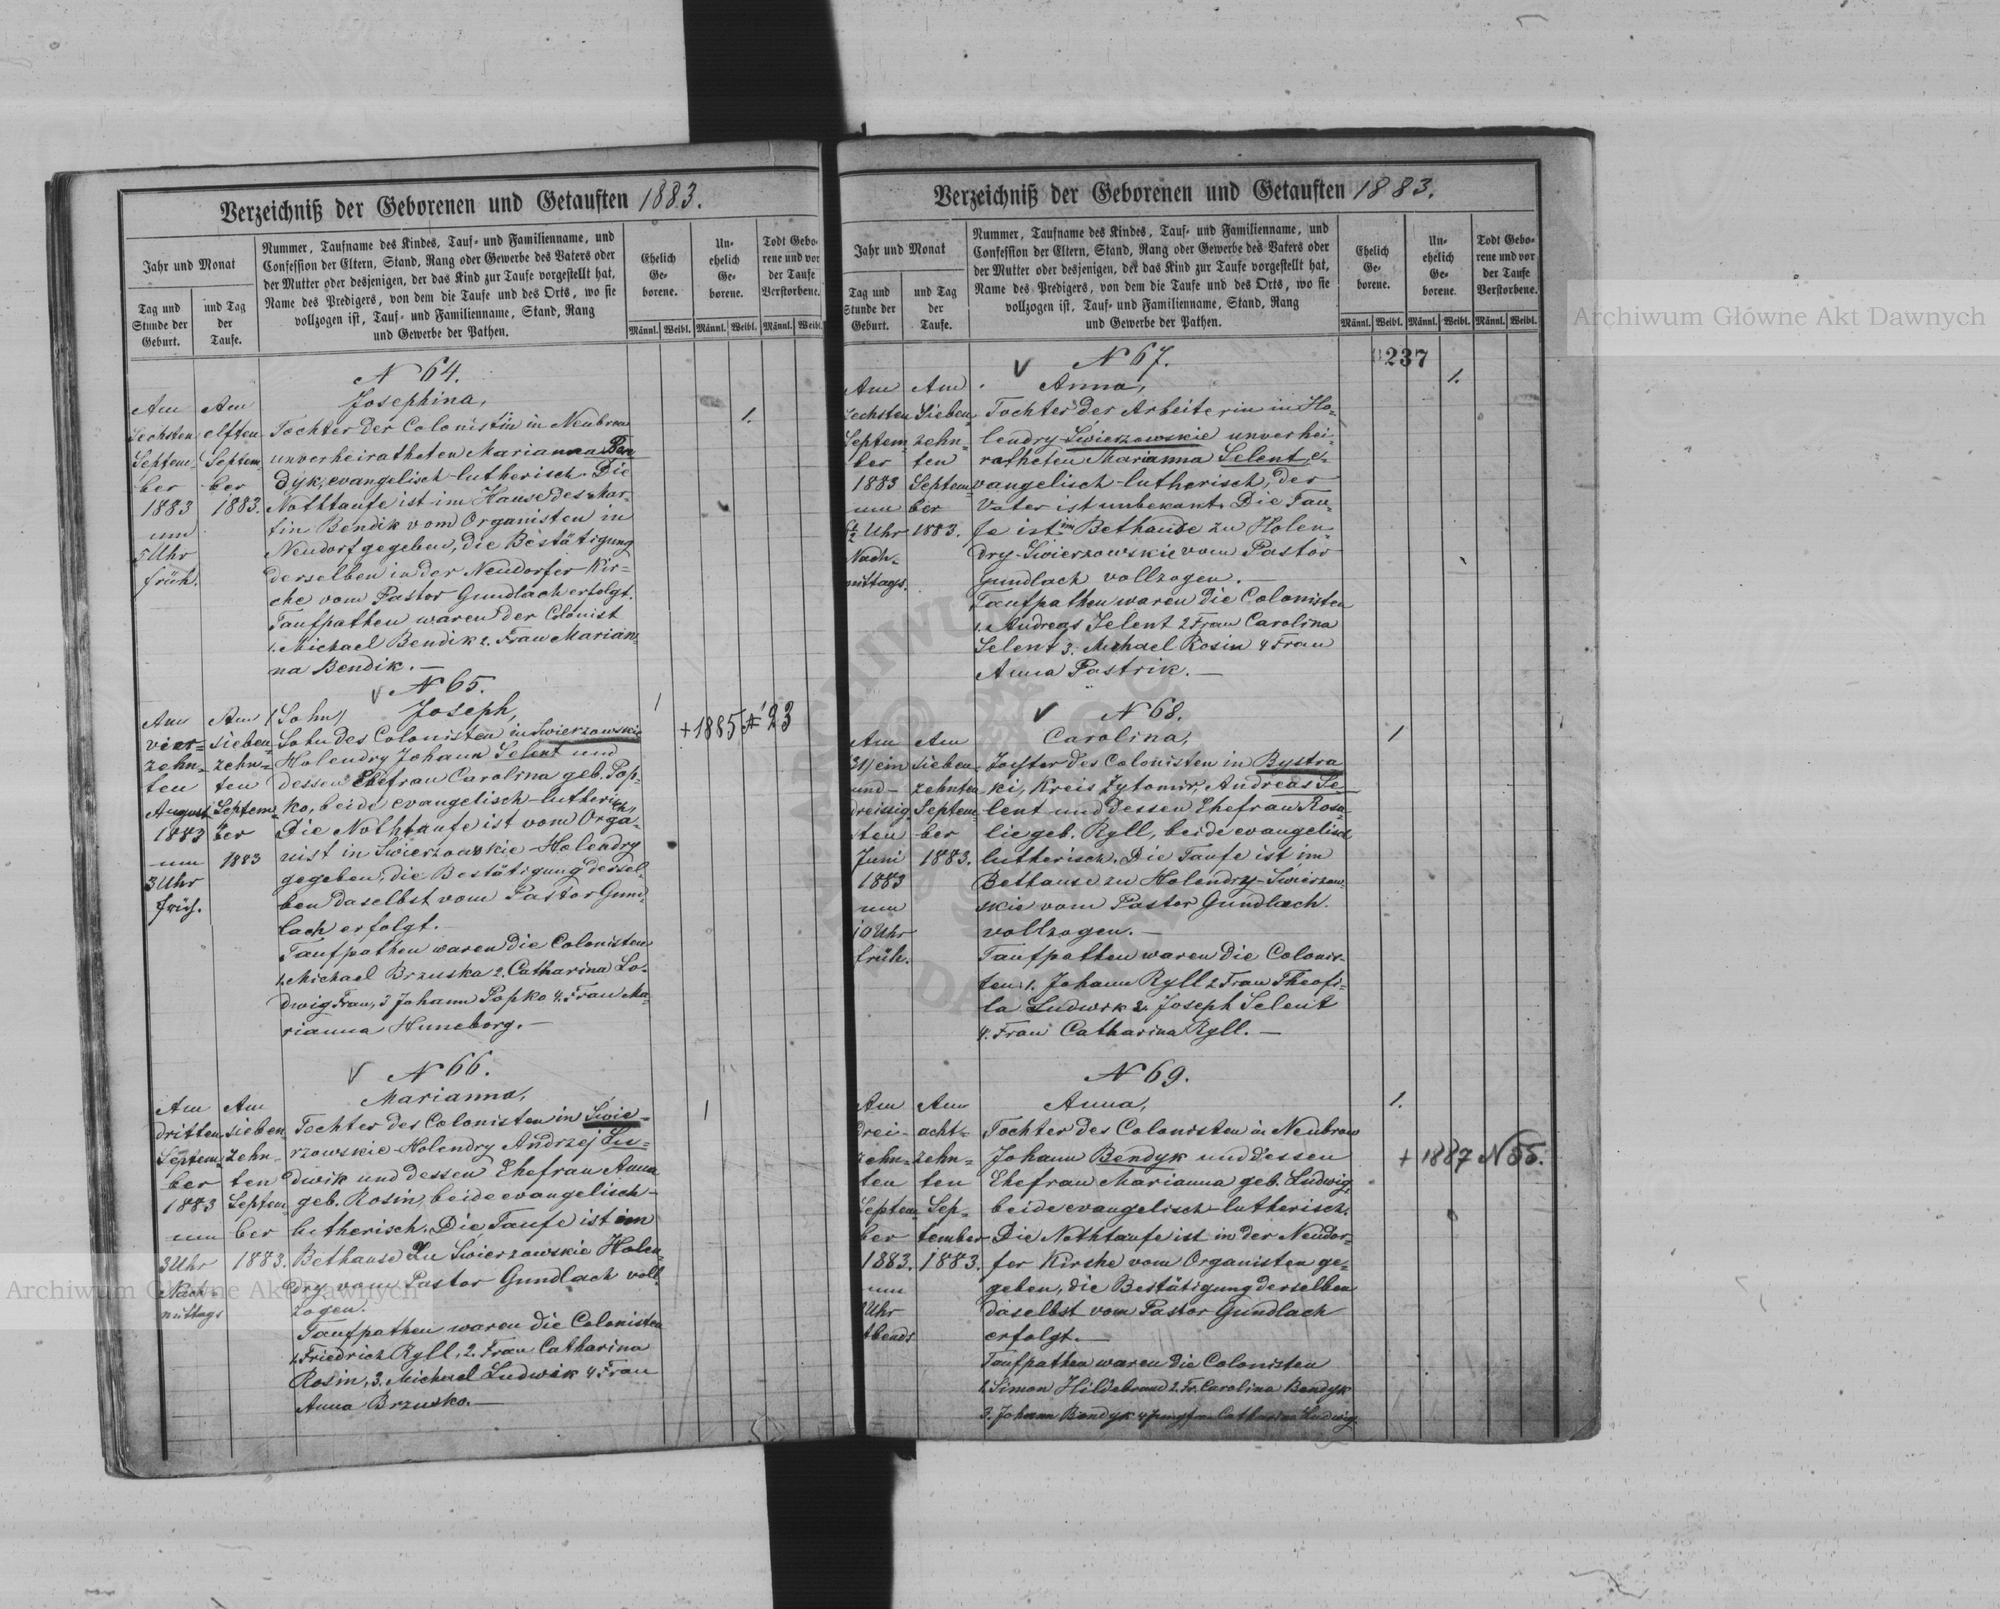 Verzeichniß der Geborenen und Getauften 1883.
Jahr und Monat
Tag und
Stunde der
Geburt.
und Tag
der
Taufe.
Nummer, Taufname des Kindes, Tauf- und Familienname, und
Confession der Eltern, Stand, Rang oder Gewerbe des Vaters oder
der Mutter oder desjenigen, der das Kind zur Taufe vorgestellt hat,
Name des Predigers, von dem die Taufe und des Orts, wo sie
vollzogen ist, Tauf- und Familienname, Stand, Rang
und Gewerbe der Pathen.
Ehelich
Ge-
borene.
Un-
ehelich
Ge-
borene.
Todt Gebo-
rene und vor
der Taufe
Verstorbene.
Männl. Weibl. Männl. Weibl. Männl. Weibl.
N 64.
Am
Sechsten
Septem-
ber
1883
um
5 Uhr
früh.
Am
elften
Septem-
ber
1883.
Josephina,
Tochter der Colonistin in Neubrow
unverheiratheten Marianna Ben-
dyk, evangelisch-lutherisch. Die
Nothtaufe ist im Hause des Mar-
tin Bendik vom Organisten in
Neudorf gegeben, die Bestätigung
derselben in der Neudorfer Kir-
che vom Pastor Gundlach erfolgt.
Taufpathen waren der Colonist
1. Michael Bendik 2. Frau Marian-
na Bendik.
1.
N 65.
Am
vier-
zehn-
ten
August
1883
um
3 Uhr
früh.
Am
sieben-
zehn-
ten
Septem-
ber
1883
(Sohn) Joseph,
Sohn des Colonisten in Swierzowskie
Holendry Johann Selent und
dessen Ehefrau Carolina geb. Pop-
ko, beide evangelisch-lutherisch,
Die Nothtaufe ist vom Orga-
nist in Swierzowskie-Holendry
gegeben, die Bestätigung dersel-
ben daselbst vom Pastor Gund-
lach erfolgt.
Taufpathen waren die Colonisten
1. Michael Brzuska 2. Catharina Lo-
dwig Frau, 3 Johann Popko 4. Frau Ma-
rianna Hunneborg.
1
+ 1885 N 23
N 66.
Am
dritten
Septem-
ber
1883
um
3 Uhr
Nach-
mittags
Am
sieben-
zehn-
ten
Septem-
ber
1883.
Marianna,
Tochter des Colonisten in Swie-
rzowskie-Holendry Andrzej Lu-
dwik und dessen Ehefrau Anna
geb. Rosin, beide evangelisch-
lutherisch. Die Taufe ist im
Bethause zu Swierzowskie Holen-
dry vom Pastor Gundlach voll
zogen.
Taufpathen waren die Colonisten
1. Friedrich Ryll, 2. Frau Catharina
Rosin, 3. Michael Ludwik 4 Frau
Anna Brzusko.
1
Verzeichniß der Geborenen und Getauften 1883.
Jahr und Monat
Tag und
Stunde der
Geburt.
und Tag
der
Taufe.
Nummer, Taufname des Kindes, Tauf- und Familienname, und
Confession der Eltern, Stand, Rang oder Gewerbe des Vaters oder
der Mutter oder desjenigen, der das Kind zur Taufe vorgestellt hat,
Name des Predigers, von dem die Taufe und des Orts, wo sie
vollzogen ist, Tauf- und Familienname, Stand, Rang
und Gewerbe der Pathen.
Ehelich
Ge-
borene.
Un-
ehelich
Ge-
borene.
Todt Gebo-
rene und vor
der Taufe
Verstorbene.
Männl. Weibl. Männl. Weibl. Männl. Weibl.
237
N 67.
Am
Sechsten
Septem-
ber
1883
um
Uhr
Nach-
mittags.
Am
Sieben-
zehn-
ten
Septem-
ber
1883.
Anna,
Tochter der Arbeiterin in Ho-
lendry-Swierzowskie unverhei-
ratheten Marianna Selent, e-
vangelisch-lutherisch, der
Vater ist unbekant. Die Tau-
fe ist im Bethause zu Holen-
dry-Swierzowskie vom Pastor
Gundlach vollzogen.
Taufpathen waren die Colonisten
1. Andreas Selent 2 Frau Carolina
Selent 3. Michael Rosin 4 Frau
Anna Pastrik.
1.
N 68.
Am
31) ein
und
dreissig
ten
Juni
1883
um
10 Uhr
früh.
Am
sieben-
zehnten
Septem-
ber
1883.
Carolina,
Tochter des Colonisten in Bystra
ki, Kreis Zytomir, Andreas Se-
lent und dessen Ehefrau Rosa-
lie geb. Ryll, beide evangelisch
lutherisch. Die Taufe ist im
Bethause zu Holendry-Swierzow-
skie vom Pastor Gundlach
vollzogen.
Taufpathen waren die Colonis-
ten: 1. Johann Ryll 2 Frau Theofi-
la Ludwik 3. Joseph Selent
4. Frau Catharina Ryll.
1
N 69.
Am
Drei-
zehn-
ten
Septem-
ber
1883.
um
Uhr
Abends
Am
acht-
zehn-
ten
Sep-
tember
1883.
Anna,
Tochter des Colonisten in Neubrow
Johann Bendyk und dessen
Ehefrau Marianna geb. Ludwig,
beide evangelisch-lutherisch.
Die Nothtaufe ist in der Neudor-
fer Kirche vom Organisten ge-
geben, die Bestätigung derselben
daselbst vom Pastor Gundlach
erfolgt.
Taufpathen waren die Colonisten
1. Simon Hildebrand 2. Fr. Carolina Bendyk
3. Johann Bendyk 4 Jungfrau Catharina Ludwig
1.
+ 1887 N 55.
Archiwum Główne Akt Dawnych
Archiwum Główne Akt Dawnych